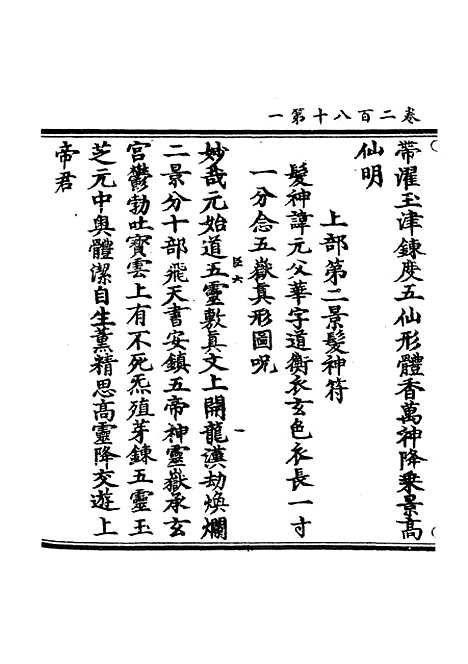 一第十八百二卷
帶濯玉津鍊度五仙形體香萬神降乗景高
仙明
上部第二景髮神符
髮神諱元父華字道衡衣玄色衣長一寸
一分念五嶽真形圖呪
妙哉元始道五靈敷真文上開龍漢劫煥爛
二景分十部飛天書安鎮五帝神靈嶽承玄
宮鬱勃吐寳雲上有不死炁殖芽鍊五靈玉
芝元中奥體潔自生薰精思高靈降交遊上
帝君